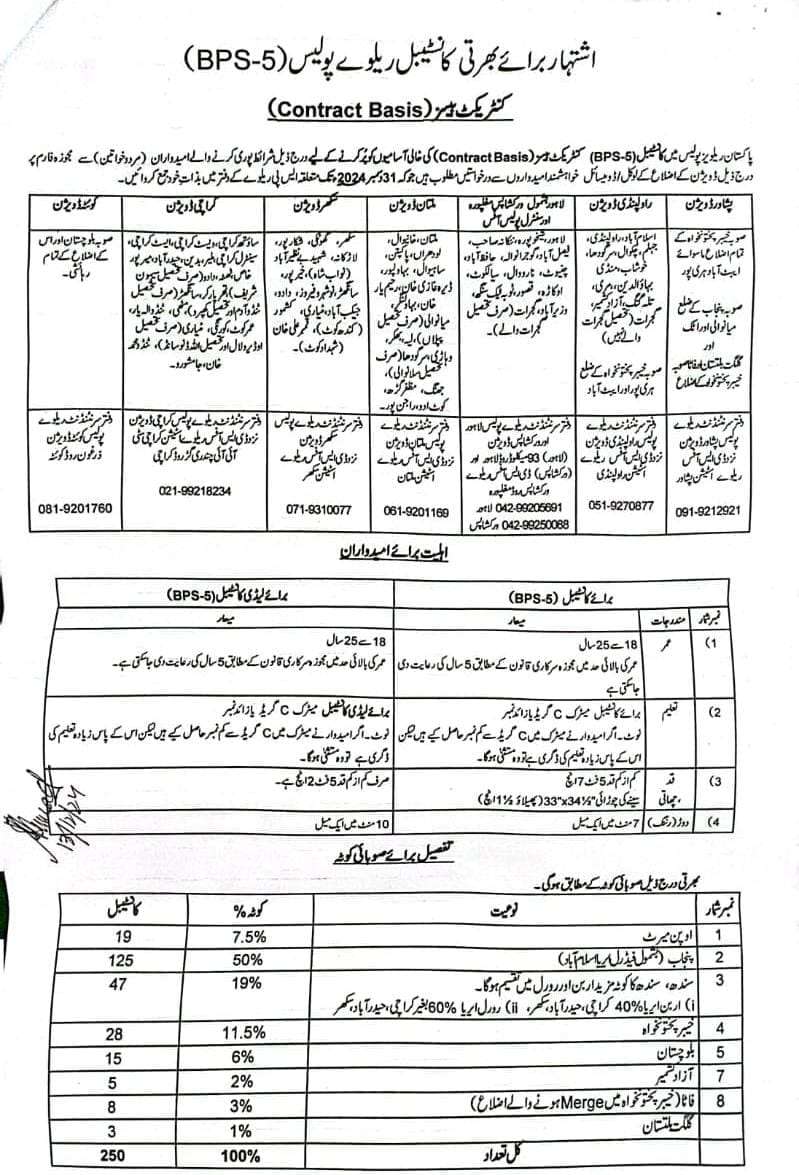 اشتہار برائے بھرتی کانسٹیبل ریلوے پولیس (BPS-5)
کنٹریکٹ بیسز (Contract Basis)
پاکستان ریلویز پولیس میں کانسٹیبل (BPS-5) کنٹریکٹ بیسز (Contract Basis) کی خالی آسامیوں کو پُر کرنے کے لیے درج ذیل شرائط پوری کرنے والے امیدواران (مرد و خواتین) سے مجوزہ فارم پر
درج ذیل ڈویژن کے اضلاع کے لوکل / ڈومیسائل خواہشمند امیدواروں سے درخواستیں مطلوب ہیں جو کہ 31 دسمبر 2024 تک متعلقہ ایس پی ریلوے کے دفتر میں بذات خود جمع کروائیں۔
پشاور ڈویژن
صوبہ خیبر پختونخواہ کے
تمام اضلاع ماسوائے
ایبٹ آباد، ہری پور
صوبہ پنجاب کے ضلع
میانوالی اور اٹک
اور
گلگت بلتستان اور فاٹا صوبہ
خیبر پختونخواہ کے اضلاع
دفتر سپرنٹنڈنٹ ریلوے
پولیس پشاور ڈویژن
نزد ڈی ایس آفس
ریلوے اسٹیشن پشاور
091-9212921
راولپنڈی ڈویژن
اسلام آباد، راولپنڈی،
جہلم، چکوال، سرگودھا،
خوشاب، منڈی
بہاؤالدین، مری،
تلہ گنگ، آزاد کشمیر،
گجرات (تحصیل گجرات
والے نہیں)
صوبہ خیبر پختونخواہ کے ضلع
ہری پور اور ایبٹ آباد
دفتر سپرنٹنڈنٹ ریلوے
پولیس راولپنڈی ڈویژن
نزد ڈی ایس آفس ریلوے
اسٹیشن راولپنڈی
051-9270877
لاہور بشمول ورکشاپس مغلپورہ
اور سنٹرل پولیس آفس
لاہور، شیخوپورہ، ننکانہ صاحب،
فیصل آباد، گوجرانوالہ، حافظ آباد،
چنیوٹ، نارووال، سیالکوٹ،
اوکاڑہ، قصور، ٹوبہ ٹیک سنگھ،
وزیر آباد، گجرات (صرف تحصیل
گجرات والے)۔
دفتر سپرنٹنڈنٹ ریلوے پولیس لاہور
اور ورکشاپس ڈویژن
(لاہور) 93-میکلوڈ روڈ لاہور اور
(ورکشاپس) ڈی ایس آفس
ورکشاپس روڈ مغلپورہ
لاہور 042-99205691
ورکشاپس 042-99250068
ملتان ڈویژن
ملتان، خانیوال،
لودھراں، پاکپتن،
ساہیوال، بہاولپور،
ڈیرہ غازی خان، رحیم یار
خان، بہاولنگر،
میانوالی (صرف تحصیل
پپلاں)، لیہ، بھکر،
وہاڑی، سرگودھا (صرف
تحصیل سلانوالی)،
جھنگ، مظفر گڑھ،
کوٹ ادو، راجن پور۔
دفتر سپرنٹنڈنٹ ریلوے
پولیس ملتان ڈویژن
نزد ڈی ایس آفس ریلوے
اسٹیشن ملتان
061-9201169
سکھر ڈویژن
سکھر، گھوٹکی، شکارپور،
لاڑکانہ، شہید بے نظیر آباد
(نواب شاہ)، خیر پور،
سانگھڑ، نوشہرو فیروز، دادو،
جیکب آباد، مٹیاری، کشمور
(کندھ کوٹ)، قمبر علی خان
(شہداد کوٹ)۔
دفتر سپرنٹنڈنٹ ریلوے پولیس
سکھر ڈویژن
نزد ڈی ایس آفس ریلوے
اسٹیشن سکھر
071-9310077
کراچی ڈویژن
ساؤتھ کراچی، ویسٹ کراچی، ایسٹ کراچی،
سینٹرل کراچی، ملیر، بدین، حیدر آباد، میر پور
خاص، ٹھٹہ، دادو، (صرف تحصیل سیہون
شریف)، تھرپارکر، سانگھڑ (صرف تحصیل
ٹنڈو آدم اور تحصیل کھپرو)، مٹھی، ٹنڈو الہ یار،
عمر کوٹ، کورنگی، مٹیاری (صرف تحصیل
اوڈیرو لال اور تحصیل اللہ ڈنو ساند)، ٹنڈو محمد
خان، جامشورو۔
دفتر سپرنٹنڈنٹ ریلوے پولیس کراچی ڈویژن
نزد ڈی ایس آفس ریلوے اسٹیشن کراچی سٹی
آئی آئی چندریگر روڈ کراچی
021-99218234
کوئٹہ ڈویژن
صوبہ بلوچستان اور اس
کے اضلاع کے تمام
رہائشی۔
دفتر سپرنٹنڈنٹ ریلوے
پولیس کوئٹہ ڈویژن
زرغون روڈ کوئٹہ
081-9201760
اہلیت برائے امیدواران
برائے کانسٹیبل (BPS-5) برائے لیڈی کانسٹیبل (BPS-5)
نمبر شمار مندرجات معیار معیار
1) عمر 18 سے 25 سال
عمر کی بالائی حد میں مجوزہ سرکاری قانون کے مطابق 5 سال کی رعایت دی
جا سکتی ہے
18 سے 25 سال
عمر کی بالائی حد میں مجوزہ سرکاری قانون کے مطابق 5 سال کی رعایت دی جا سکتی ہے۔
2) تعلیم برائے کانسٹیبل میٹرک C گریڈ یا زائد نمبر
نوٹ۔ اگر امیدوار نے میٹرک میں C گریڈ سے کم نمبر حاصل کیے ہیں لیکن
اس کے پاس زیادہ تعلیم کی ڈگری ہے تو وہ مستثنیٰ ہوگا۔
برائے لیڈی کانسٹیبل میٹرک C گریڈ یا زائد نمبر
نوٹ۔ اگر امیدوار نے میٹرک میں C گریڈ سے کم نمبر حاصل کیے ہیں لیکن اس کے پاس زیادہ تعلیم کی
ڈگری ہے تو وہ مستثنیٰ ہوگا۔
3) قد کم از کم قد 5 فٹ 7 انچ
چھاتی سینے کی چوڑائی "33"x34½ (پھیلاؤ 1½ انچ)
صرف کم از کم قد 5 فٹ 2 انچ ہے۔
4) دوڑ (رننگ) 7 منٹ میں ایک میل 10 منٹ میں ایک میل
13/12/24
تفصیل برائے صوبائی کوٹہ
بھرتی درج ذیل صوبائی کوٹہ کے مطابق ہوگی۔
نمبر شمار نوعیت کوٹہ % کانسٹیبل
1 اوپن میرٹ 7.5% 19
2 پنجاب (بشمول فیڈرل ایریا اسلام آباد) 50% 125
3 سندھ، سندھ کا کوٹہ مزید اربن اور رورل میں تقسیم ہوگا۔ 19% 47
i) اربن ایریا 40% کراچی، حیدر آباد، سکھر، ii) رورل ایریا 60% بغیر کراچی، حیدر آباد، سکھر
4 خیبر پختونخواہ 11.5% 28
5 بلوچستان 6% 15
7 آزاد کشمیر 2% 5
8 فاٹا (خیبر پختونخواہ میں Merge ہونے والے اضلاع) 3% 8
گلگت بلتستان 1% 3
کل تعداد 100% 250